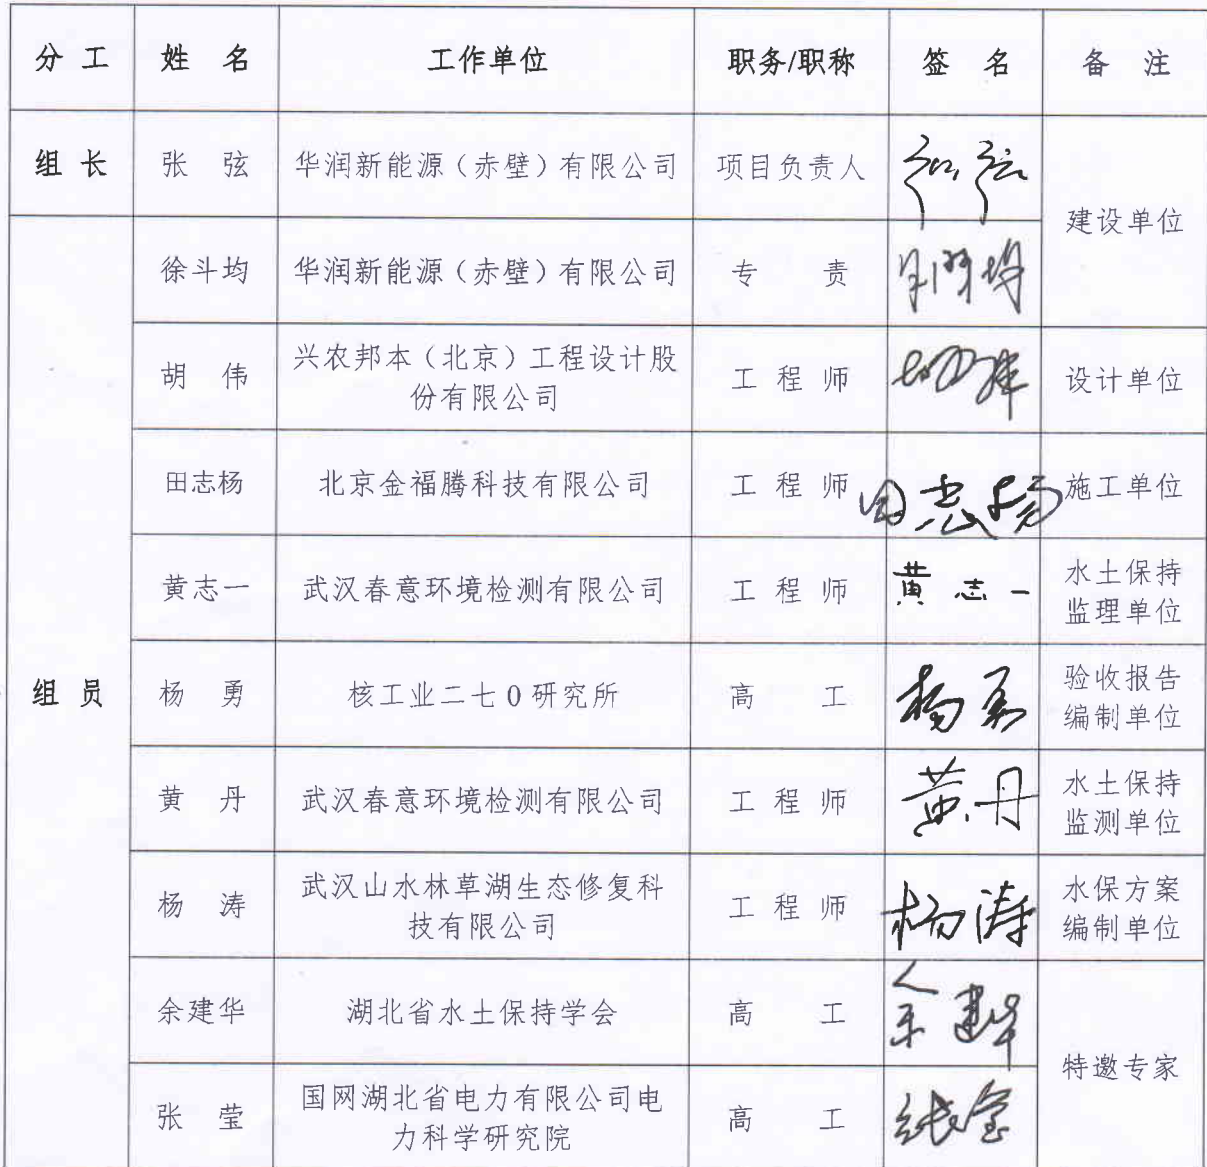 分 工 姓 名 工作单位 职务/职称 签 名 备 注
组 长 张 弦 华润新能源（赤壁）有限公司 项目负责人 张弦 建设单位
组 员 徐斗均 华润新能源（赤壁）有限公司 专 责
胡 伟 兴农邦本（北京）工程设计股
份有限公司 工 程 师 胡伟 设计单位
田志杨 北京金福腾科技有限公司 工 程 师 田志杨 施工单位
黄志一 武汉春意环境检测有限公司 工 程 师 黄志一 水土保持
监理单位
杨 勇 核工业二七0研究所 高 工 杨勇 验收报告
编制单位
黄 丹 武汉春意环境检测有限公司 工 程 师 黄丹 水土保持
监测单位
杨 涛 武汉山水林草湖生态修复科
技有限公司 工 程 师 杨涛 水保方案
编制单位
余建华 湖北省水土保持学会 高 工 余建华 特邀专家
张 莹 国网湖北省电力有限公司电
力科学研究院 高 工 张莹